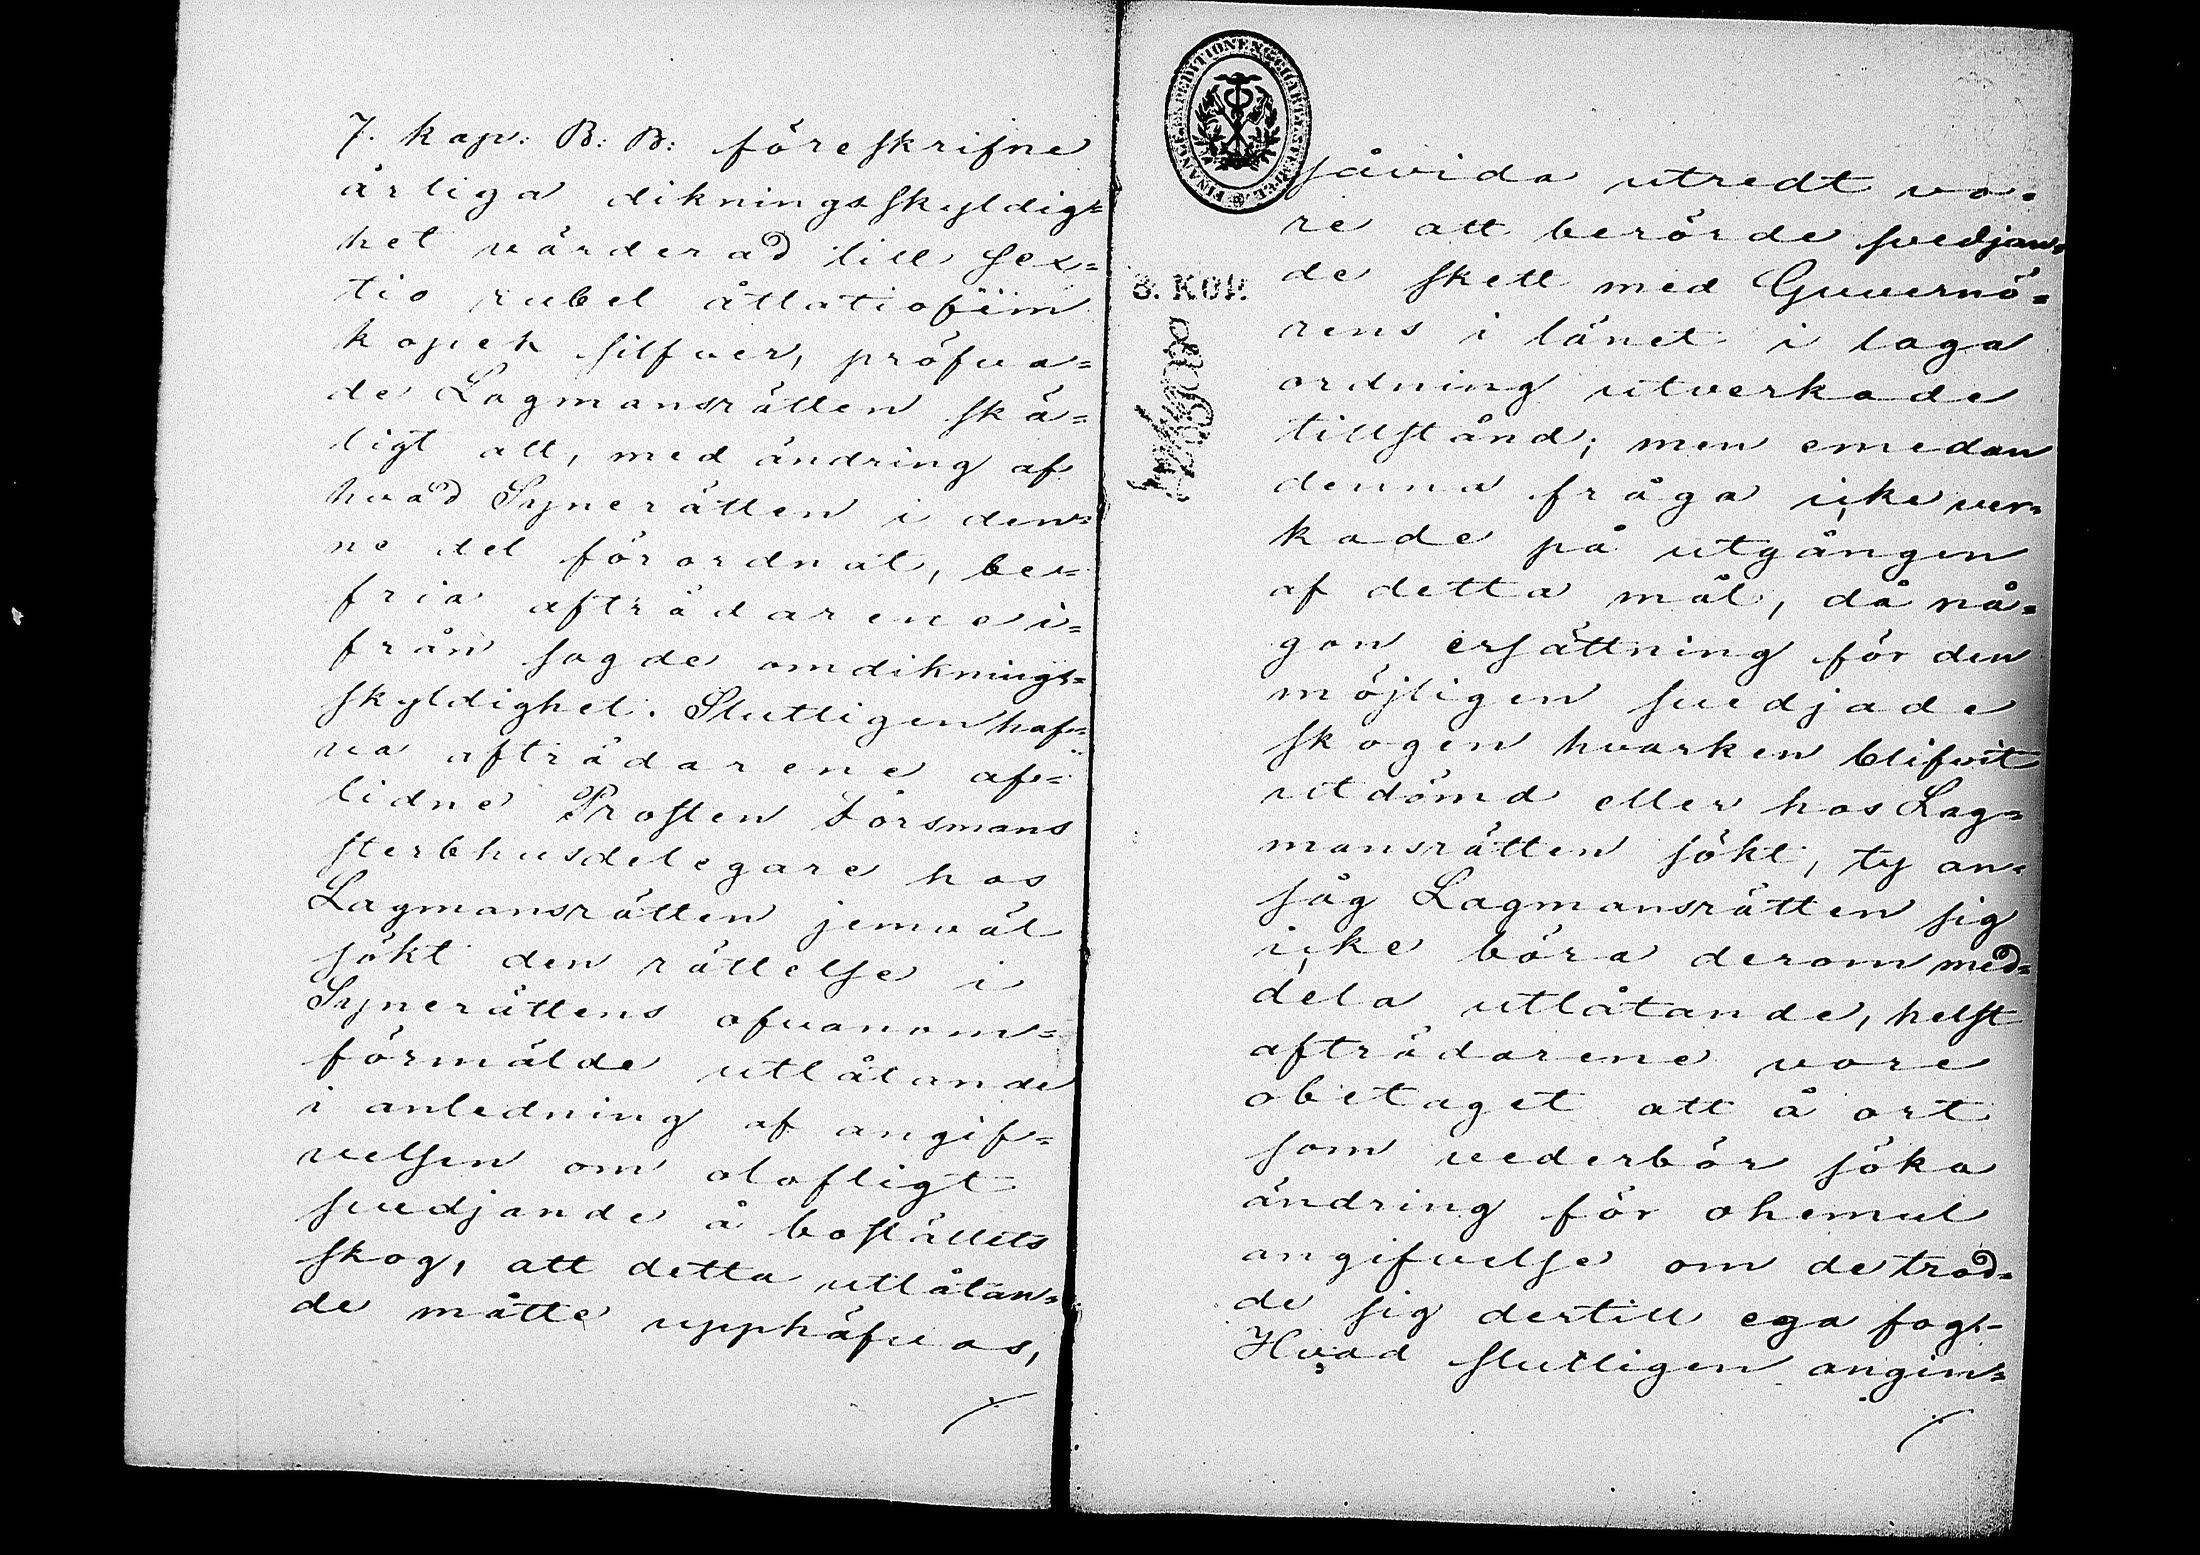 7. kap: B: B: föreskrifne
årliga dikningsskyldig=
het värderad till sex=
tio rubel åttatiofem
kopek silfver, pröfva=
de Lagmansrätten skä=
ligt att, med ändring af
hvad Synerätten i den=
ne del förordnat, be=
fria afträdarene i=
från sagde omdiknings=
skyldighet. Slutligen haf=
va afträdarene af=
lidne Prosten Forsmans
sterbhusdelegare hos
Lagmansrätten jemväl
sökt den rättelse i
Synerättens ofvanom=
förmälde utlåtande
i anledning af angif=
velsen om olofligt
svedjande å boställets
skog, att detta utlåtan=
de måtte upphäfvas,
FINANCE EXPEDITIONENS CHARTÆ STEMPEL
8. KOP.
såvida utredt vo=
re att berörde svedjan=
de skett med Guvernö=
rens i länet i laga
ordning utverkade
tillstånd; men emedan
denna fråga icke ver=
kade på utgången
af detta mål, då nå=
gon ersättning för den
möjligen svedjade
skogen hvarken blifvit
utdömd eller hos Lag=
mansrätten sökt, ty an=
såg Lagmansrätten sig
icke böra derom med=
dela utlåtande, helst
afträdarene vore
obetaget att å ort
som vederbör söka
ändring för ohemul
angifvelse om de trod=
de sig dertill ega fog.-
Hvad slutligen angin=